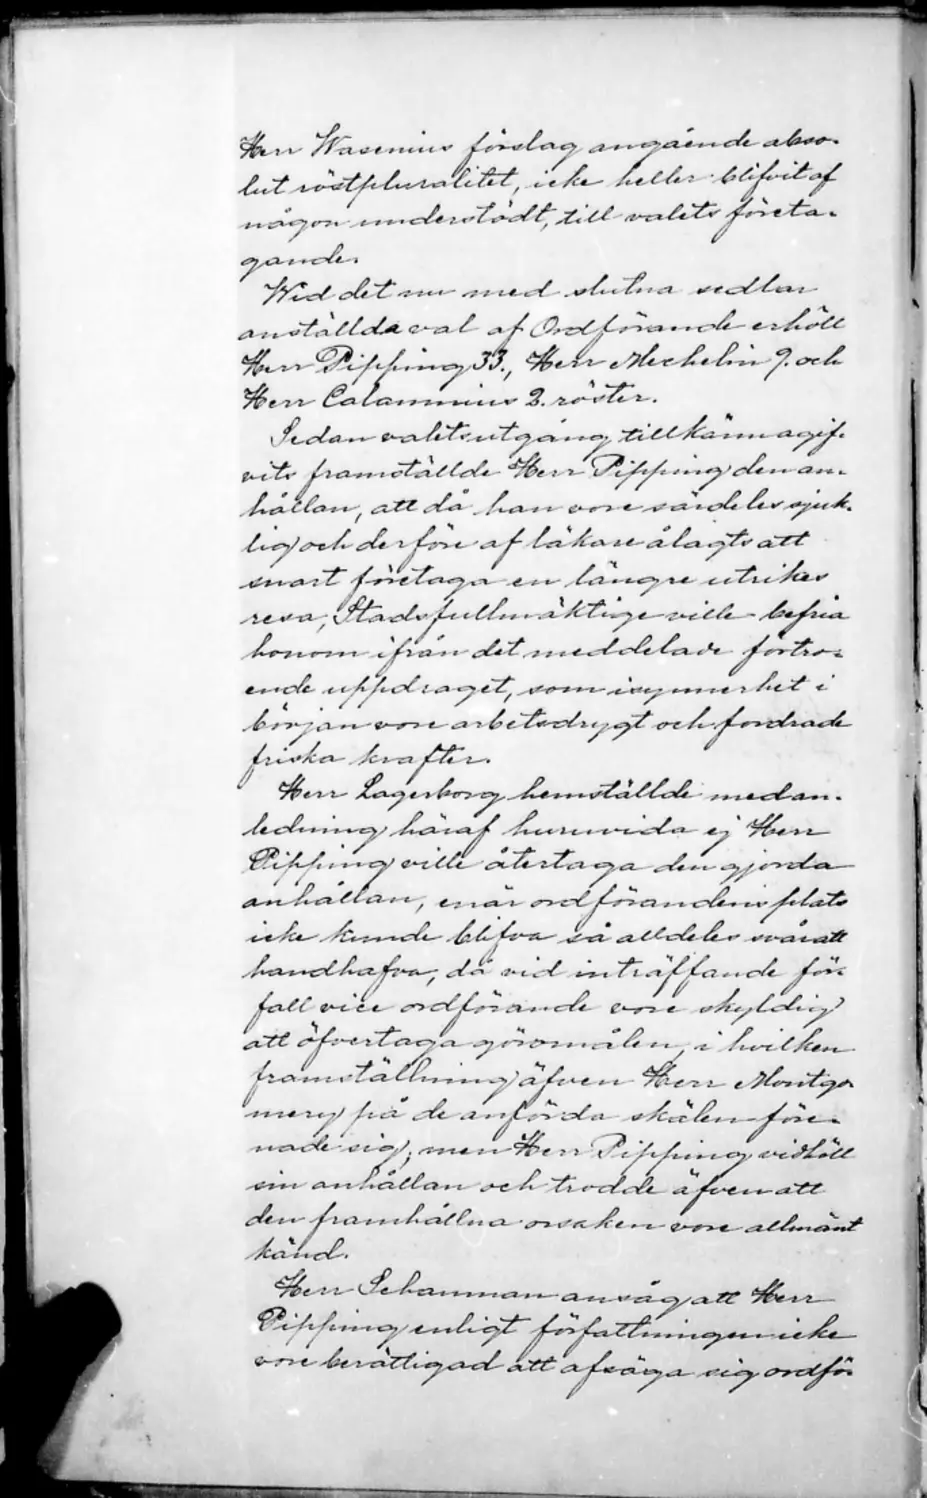 Herr Wasenius förslag angående abso-
lut röstpluralitet, icke heller blifvit af
någon understödt, till valets företa-
gande.
Wid det nu med slutna sedlar
anställda val af Ordförande erhöll
Herr Pipping 33., Herr Mechelin 9. och
Herr Calamnius 2. röster.
Sedan valets utgång tillkännagif-
vits framställde Herr Pipping den an-
hållan, att då han vore särdeles sjuk-
lig och derföre af läkare ålagts att
snart företaga en längre utrikes
resa, Stadsfullmäktige ville befria
honom ifrån det meddelade förtro-
ende uppdraget, som isynnerhet i
början vore arbetsdrygt och fordrade
friska krafter.
Herr Lagerborg hemställde med an-
ledning häraf huruvida ej Herr
Pipping ville återtaga den gjorda
anhållan, enär ordförandens plats
icke kunde blifva så alldeles svår att
handhafva, då vid inträffande för-
fall vice ordförande vore skyldig
att öfvertaga göromålen, i hvilken
framställning äfven Herr Montgo-
mery på de anförda skälen före-
nade sig; men Herr Pipping vidhöll
sin anhållan och trodde äfven att
den framhållna orsaken vore allmänt
känd.
Herr Schauman ansåg att Herr
Pipping enligt författningen icke
vore berättigad att afsäga sig ordfö-